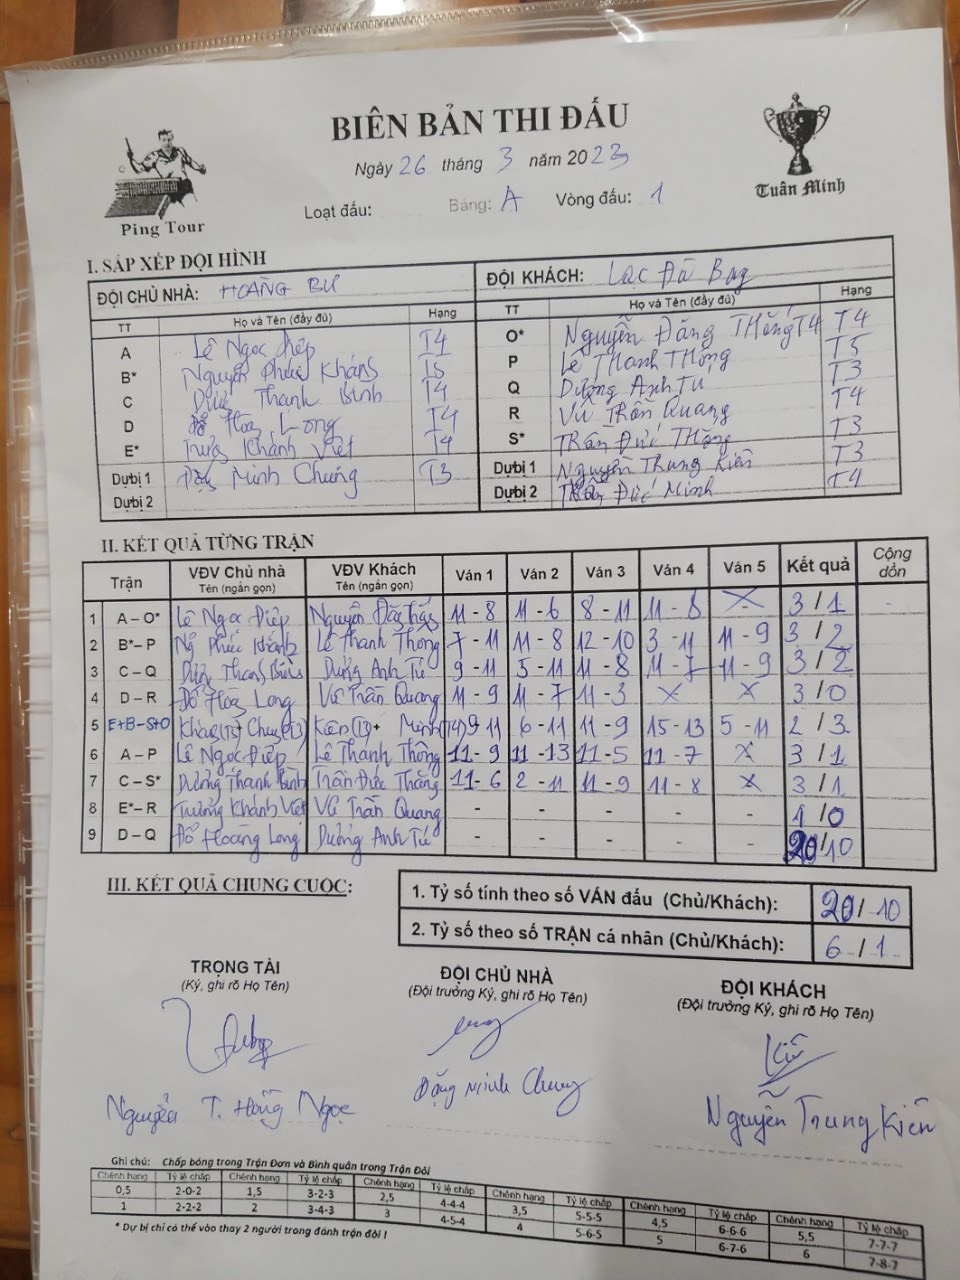 BIÊN BẢN THI ĐẤU
Ngày 26 tháng 3 năm 2023
Ping Tour
Tuân Minh
Loạt đấu: Bảng: A Vòng đấu: 1
I. SẮP XẾP ĐỘI HÌNH
ĐỘI CHỦ NHÀ: HOÀNG BỬ ĐỘI KHÁCH: Lạc Đà Bay
TT Họ và Tên (đầy đủ) Hạng TT Họ và Tên (đầy đủ) Hạng
A Lê Ngọc Điệp T4 O* Nguyễn Đăng Thắng T4 T4
B* Nguyễn Phúc Khánh T5 P Lê Thanh Thông T5
C Thanh Bình T4 Q Dương Anh Tú T3
D Long T4 R Vũ Trần Quang T4
E* Khánh Việt T4 S* Trần Đức Thắng T3
Dự bị 1 Minh Chung T3 Dự bị 1 Nguyễn Trung Kiên T3
Dự bị 2 Dự bị 2 Trần Đức Minh T4
II. KẾT QUẢ TỪNG TRẬN
Trận VĐV Chủ nhà Tên (ngắn gọn) VĐV Khách Tên (ngắn gọn) Ván 1 Ván 2 Ván 3 Ván 4 Ván 5 Kết quả Cộng dồn
1 A – O* Lê Ngọc Điệp Nguyễn Đăng Thắng 11 - 8 11 - 6 8 - 11 11 - 8 X 3 / 1 -
2 B* – P Ng Phúc Khánh Lê Thanh Thông 7 - 11 11 - 8 12 - 10 3 - 11 11 - 9 3 / 2
3 C – Q Thanh Bình Dương Anh Tú 9 - 11 5 - 11 11 - 8 11 - 7 11 - 9 3 / 2
4 D – R Đỗ Hoàng Long Vũ Trần Quang 11 - 9 11 - 7 11 - 3 X X 3 / 0
5 E+B – S+O Khánh (T5) + Chung (T3) Kiên (T3) + Minh (T4) 9 - 11 6 - 11 11 - 9 15 - 13 5 - 11 2 / 3
6 A – P Lê Ngọc Điệp Lê Thanh Thông 11 - 9 11 - 13 11 - 5 11 - 7 X 3 / 1
7 C – S* Dương Thanh Bình Trần Đức Thắng 11 - 6 2 - 11 11 - 9 11 - 8 X 3 / 1
8 E* – R Trương Khánh Việt Vũ Trần Quang - - - - - 1 / 0
9 D – Q Đỗ Hoàng Long Dương Anh Tú - - - - - 20 / 10
III. KẾT QUẢ CHUNG CUỘC:
1. Tỷ số tính theo số VÁN đấu (Chủ/Khách): 20 / 10
2. Tỷ số theo số TRẬN cá nhân (Chủ/Khách): 6 / 1
TRỌNG TÀI ĐỘI CHỦ NHÀ ĐỘI KHÁCH
(Ký, ghi rõ Họ Tên) (Đội trưởng Ký, ghi rõ Họ Tên) (Đội trưởng Ký, ghi rõ Họ Tên)
Nguyễn T. Hồng Ngọc Đặng Minh Chung Nguyễn Trung Kiên
Ghi chú: Chấp bóng trong Trận Đơn và Bình quân trong Trận Đôi
Chênh hạng Tỷ lệ chấp Chênh hạng Tỷ lệ chấp Chênh hạng Tỷ lệ chấp Chênh hạng Tỷ lệ chấp Chênh hạng Tỷ lệ chấp Chênh hạng Tỷ lệ chấp
0,5 2-0-2 1,5 3-2-3 2,5 4-4-4 3,5 5-5-5 4,5 6-6-6 5,5 7-7-7
1 2-2-2 2 3-4-3 3 4-5-4 4 5-6-5 5 6-7-6 6 7-8-7
* Dự bị chỉ có thể vào thay 2 người trong đánh trận đôi !